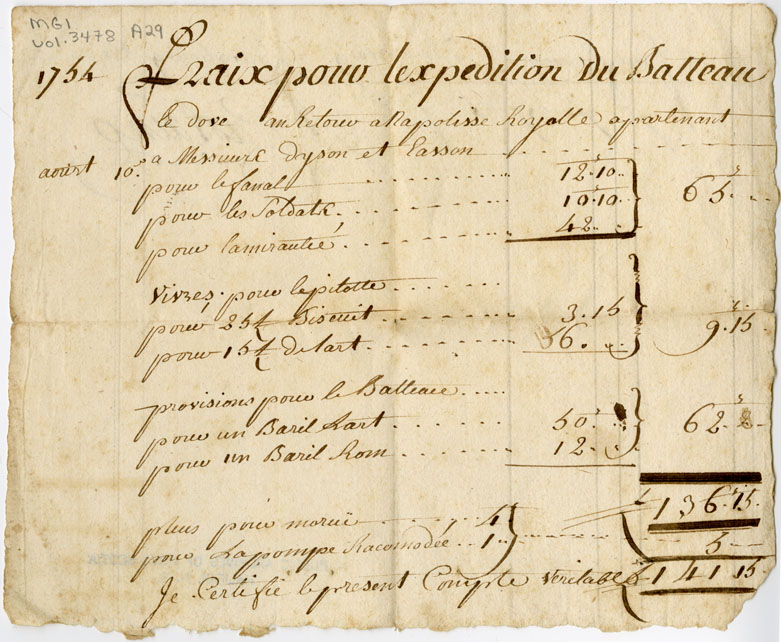 MG1
vol. 3478 A29
1754 Fraix pour lexpedition Du Batteau
le dove au Retour a Rapolisse Royalle apartenant
aoust 10. a Messieurs dyson et Easson
pour le fanal 12.10 65
pour les Soldats 10.10
pour lamirautié 42
Vivres pour le pilotte
pour 25 lt Biscuit 3.15 9.15
pour 15 lt de lart 6
provisions pour le Batteau
pour un Baril Lart 50 62
pour un Baril Rom 12
136.15
plus pour moruë 4
pour La pompe Racomodée 1 5
Je Certifie le present Compte veritable 141 15